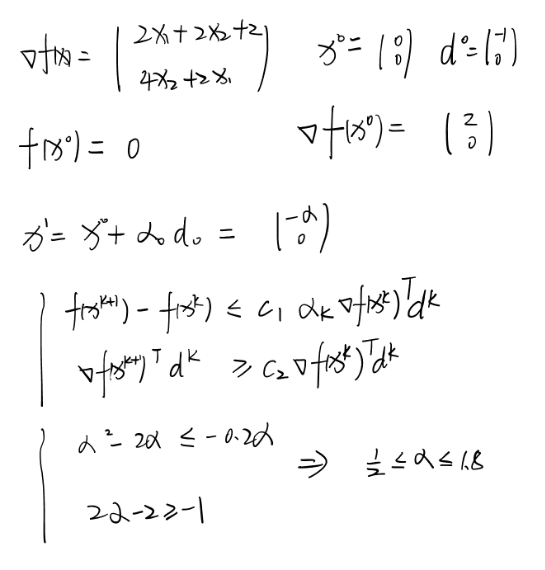 ∇f(x) = (2x₁+2x₂+2 ; 4x₂+2x₁) x⁰ = (0 ; 0) d⁰ = (-1 ; 0)
f(x⁰) = 0 ∇f(x⁰) = (2 ; 0)
x¹ = x⁰ + α₀ d₀ = (-α ; 0)
f(xᵏ⁺¹) - f(xᵏ) ≤ c₁ αₖ ∇f(xᵏ)ᵀdᵏ
∇f(xᵏ⁺¹)ᵀ dᵏ ≥ c₂ ∇f(xᵏ)ᵀdᵏ
α² - 2α ≤ -0.2α ⇒ 1/2 ≤ α ≤ 1.8
2α - 2 ≥ -1